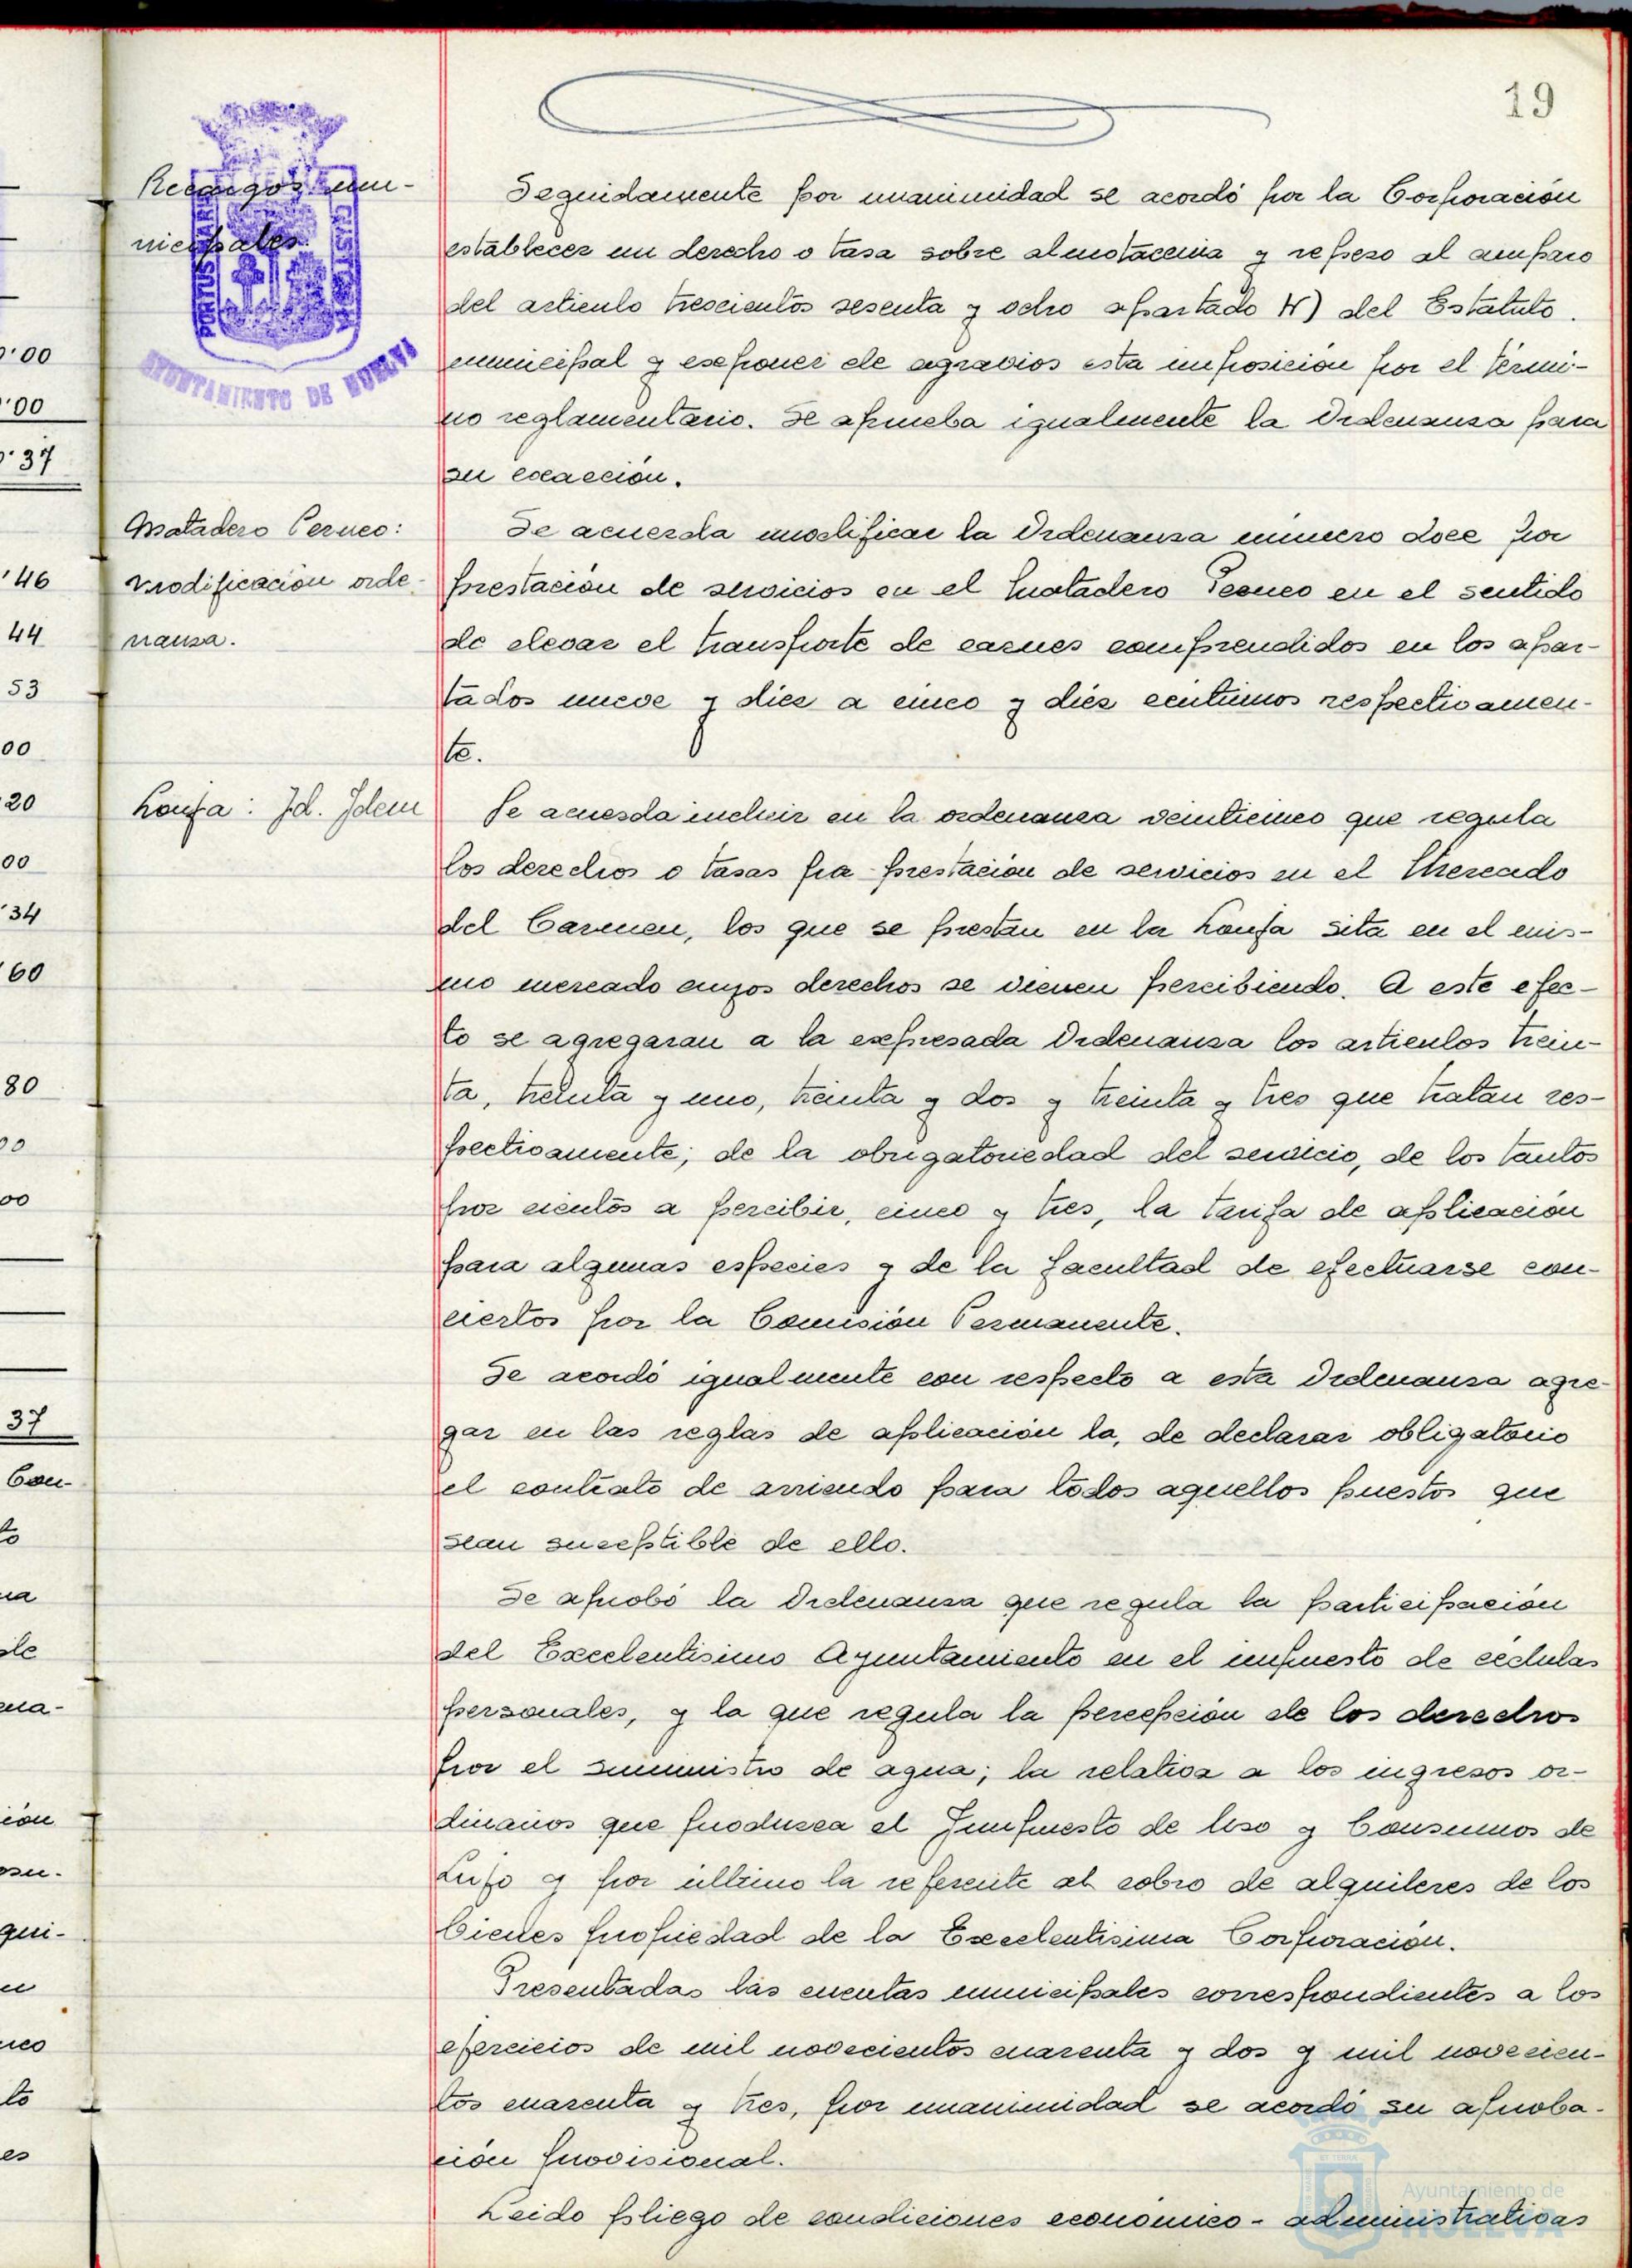 19
Recargos mu-
nicipales.
PORTUS MARIS
CUSTODIA
AYUNTAMIENTO DE HUELVA
Seguidamente por unanimidad se acordó por la Corporación
establecer un derecho o tasa sobre almotacenia y repeso al amparo
del articulo trescientos sesenta y ocho apartado H) del Estatuto.
municipal y exponer de agravios esta imposición por el térmi-
no reglamentario. Se aprueba igualmente la Ordenansa para
su exacción.
Matadero Porcuno:
modificación orde-
nansa.
Se acuerda modificar la Ordenansa número doce por
prestación de servicios en el Matadero en el sentido
de elevar el transporte de carnes comprendidos en los apar-
tados nueve y diez a cinco y diés centimos respectivamen-
te.
Lonja: Id. Idem
Se acuerda incluir en la ordenansa veinticinco que regula
los derechos o tasas por prestación de servicios en el Mercado
del Carmen, los que se prestan en la Lonja sita en el mis-
mo mercado cuyos derechos se vienen percibiendo. A este efec-
to se agregaran a la expresada Ordenansa los articulos trein-
ta, treinta y uno, treinta y dos y treinta y tres que tratan res-
pectivamente; de la obrigatoriedad del servicio, de los tantos
por cientos a percibir, cinco y tres, la tarifa de aplicación
para algunas especies y de la facultad de efectuarse con-
ciertos por la Comisión Permanente.
Se acordó igualmente con respecto a esta Ordenansa agre-
gar en las reglas de aplicación la, de declarar obligatorio
el contrato de arriendo para todos aquellos puestos que
sean suceptible de ello.
Se aprobó la Ordenansa que regula la participación
del Excelentisimo Ayuntamiento en el impuesto de cédulas
personales, y la que regula la percepción de los derechos
por el suministro de agua; la relativa a los ingresos or-
dinarios que produsca el Impuesto de Uso y Consumos de
Lujo y por último la referente al cobro de alquileres de los
bienes propiedad de la Excelentisima Corporación.
Presentadas las cuentas municipales correspondientes a los
ejercicios de mil novecientos cuarenta y dos y mil novecien-
tos cuarenta y tres, por unanimidad se acordó su aproba-
ción provisional.
Leido pliego de condiciones económico-administrativas
Ayuntamiento de
HUELVA